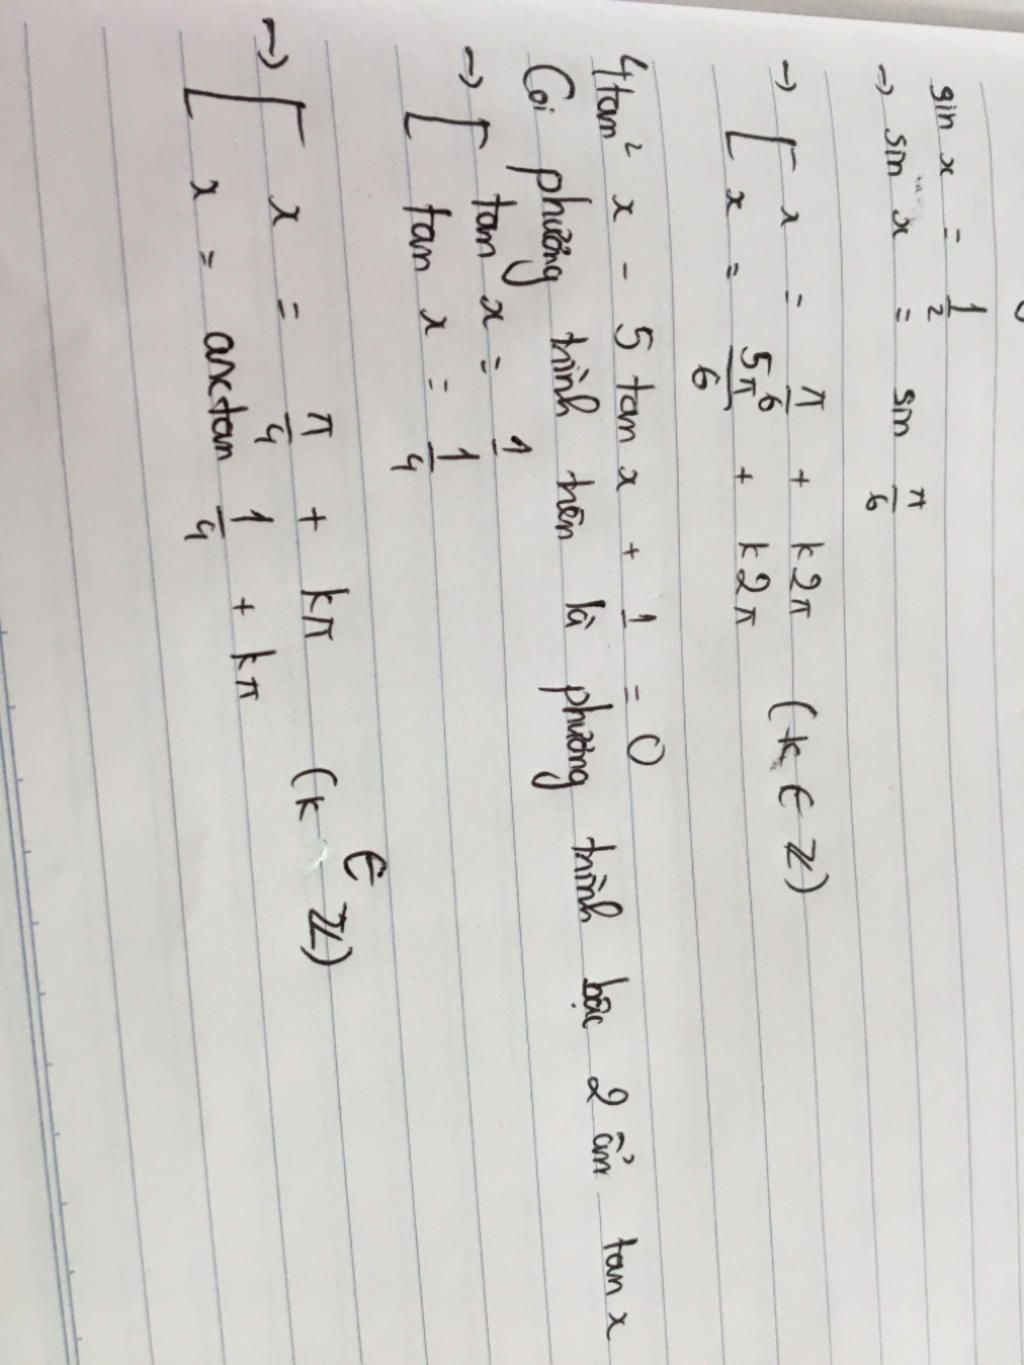 sin x = 1/2
→ sin x = sin π/6
→ [ x = π/6 + k2π (k ∈ Z)
x = 5π/6 + k2π
4tan² x - 5 tan x + 1 = 0
Coi phương trình trên là phương trình bậc 2 ẩn tan x
→ [ tan x = 1
tan x = 1/4
→ [ x = π/4 + kπ (k ∈ Z)
x = arctan 1/4 + kπ